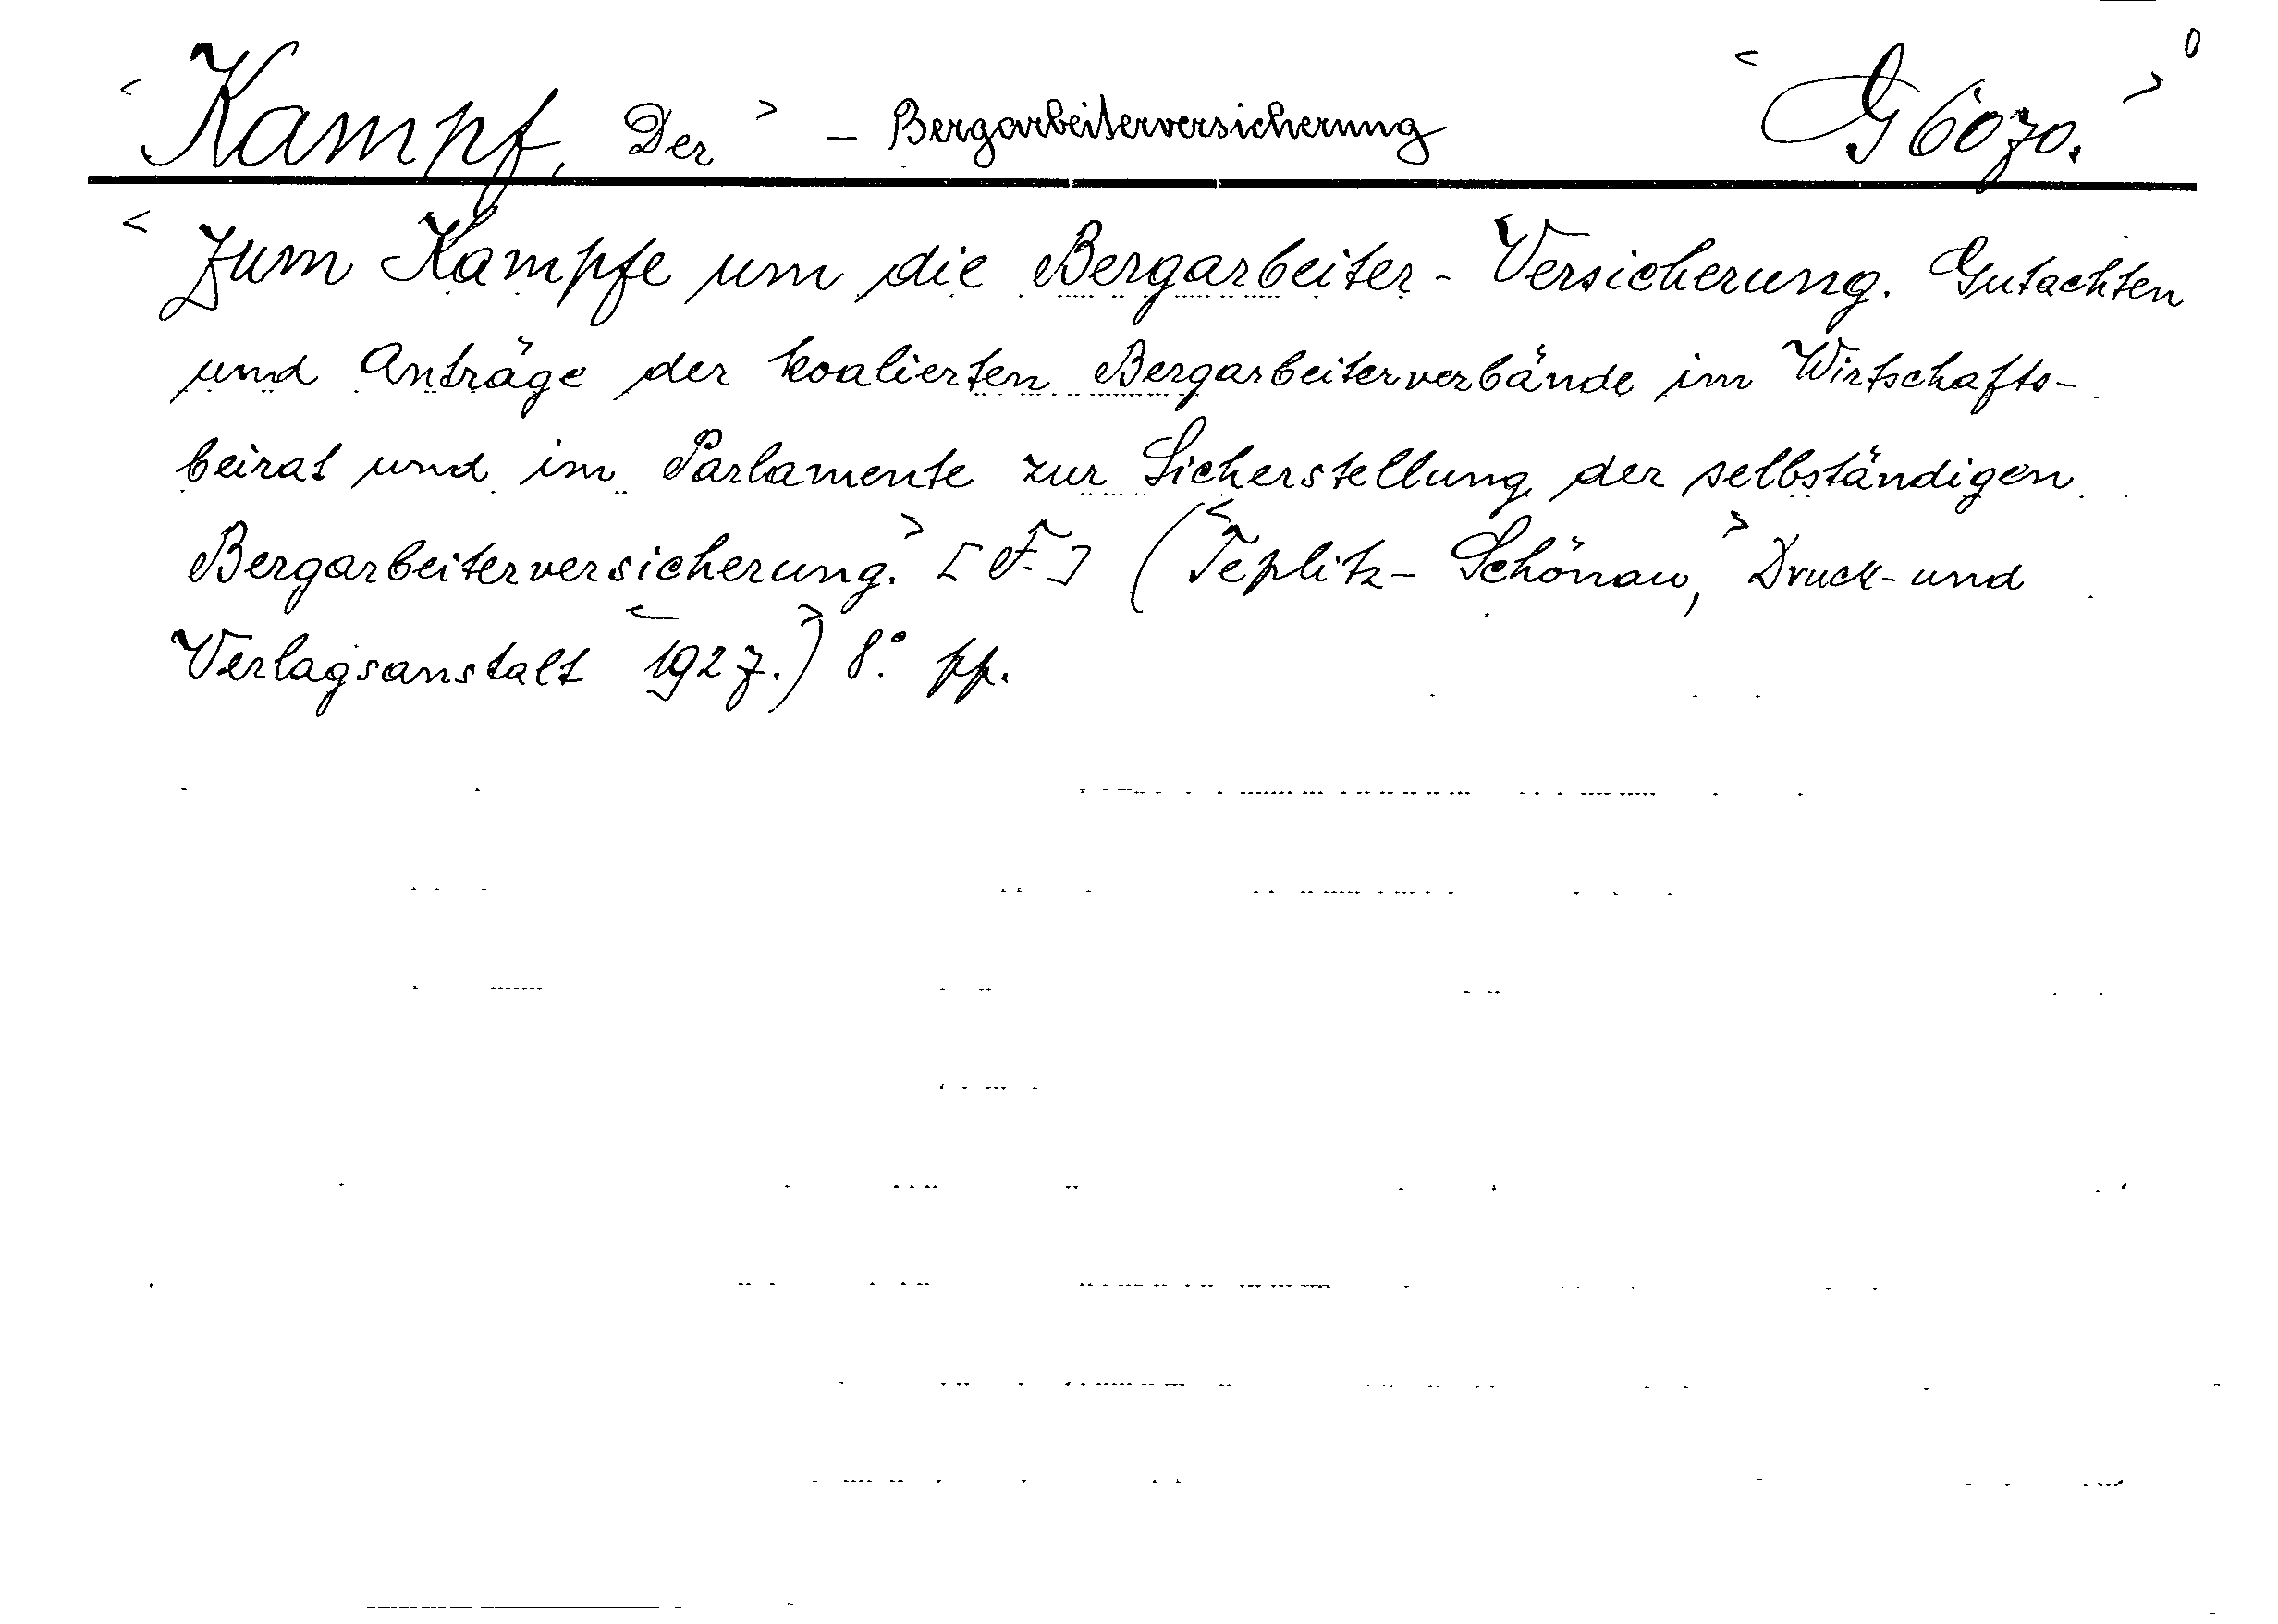 < Kampf, Der > – Bergarbeiterversicherung < G 6070. > 0
< Zum Kampfe um die Bergarbeiter-Versicherung. Gutachten
und Anträge der koalierten Bergarbeiterverbände im Wirtschafts-
beirat und im Parlamente zur Sicherstellung der selbständigen
Bergarbeiterversicherung. > [F.] (< Teplitz-Schönau, > Druck- und
Verlagsanstalt < 1927. >) 8°. pp.